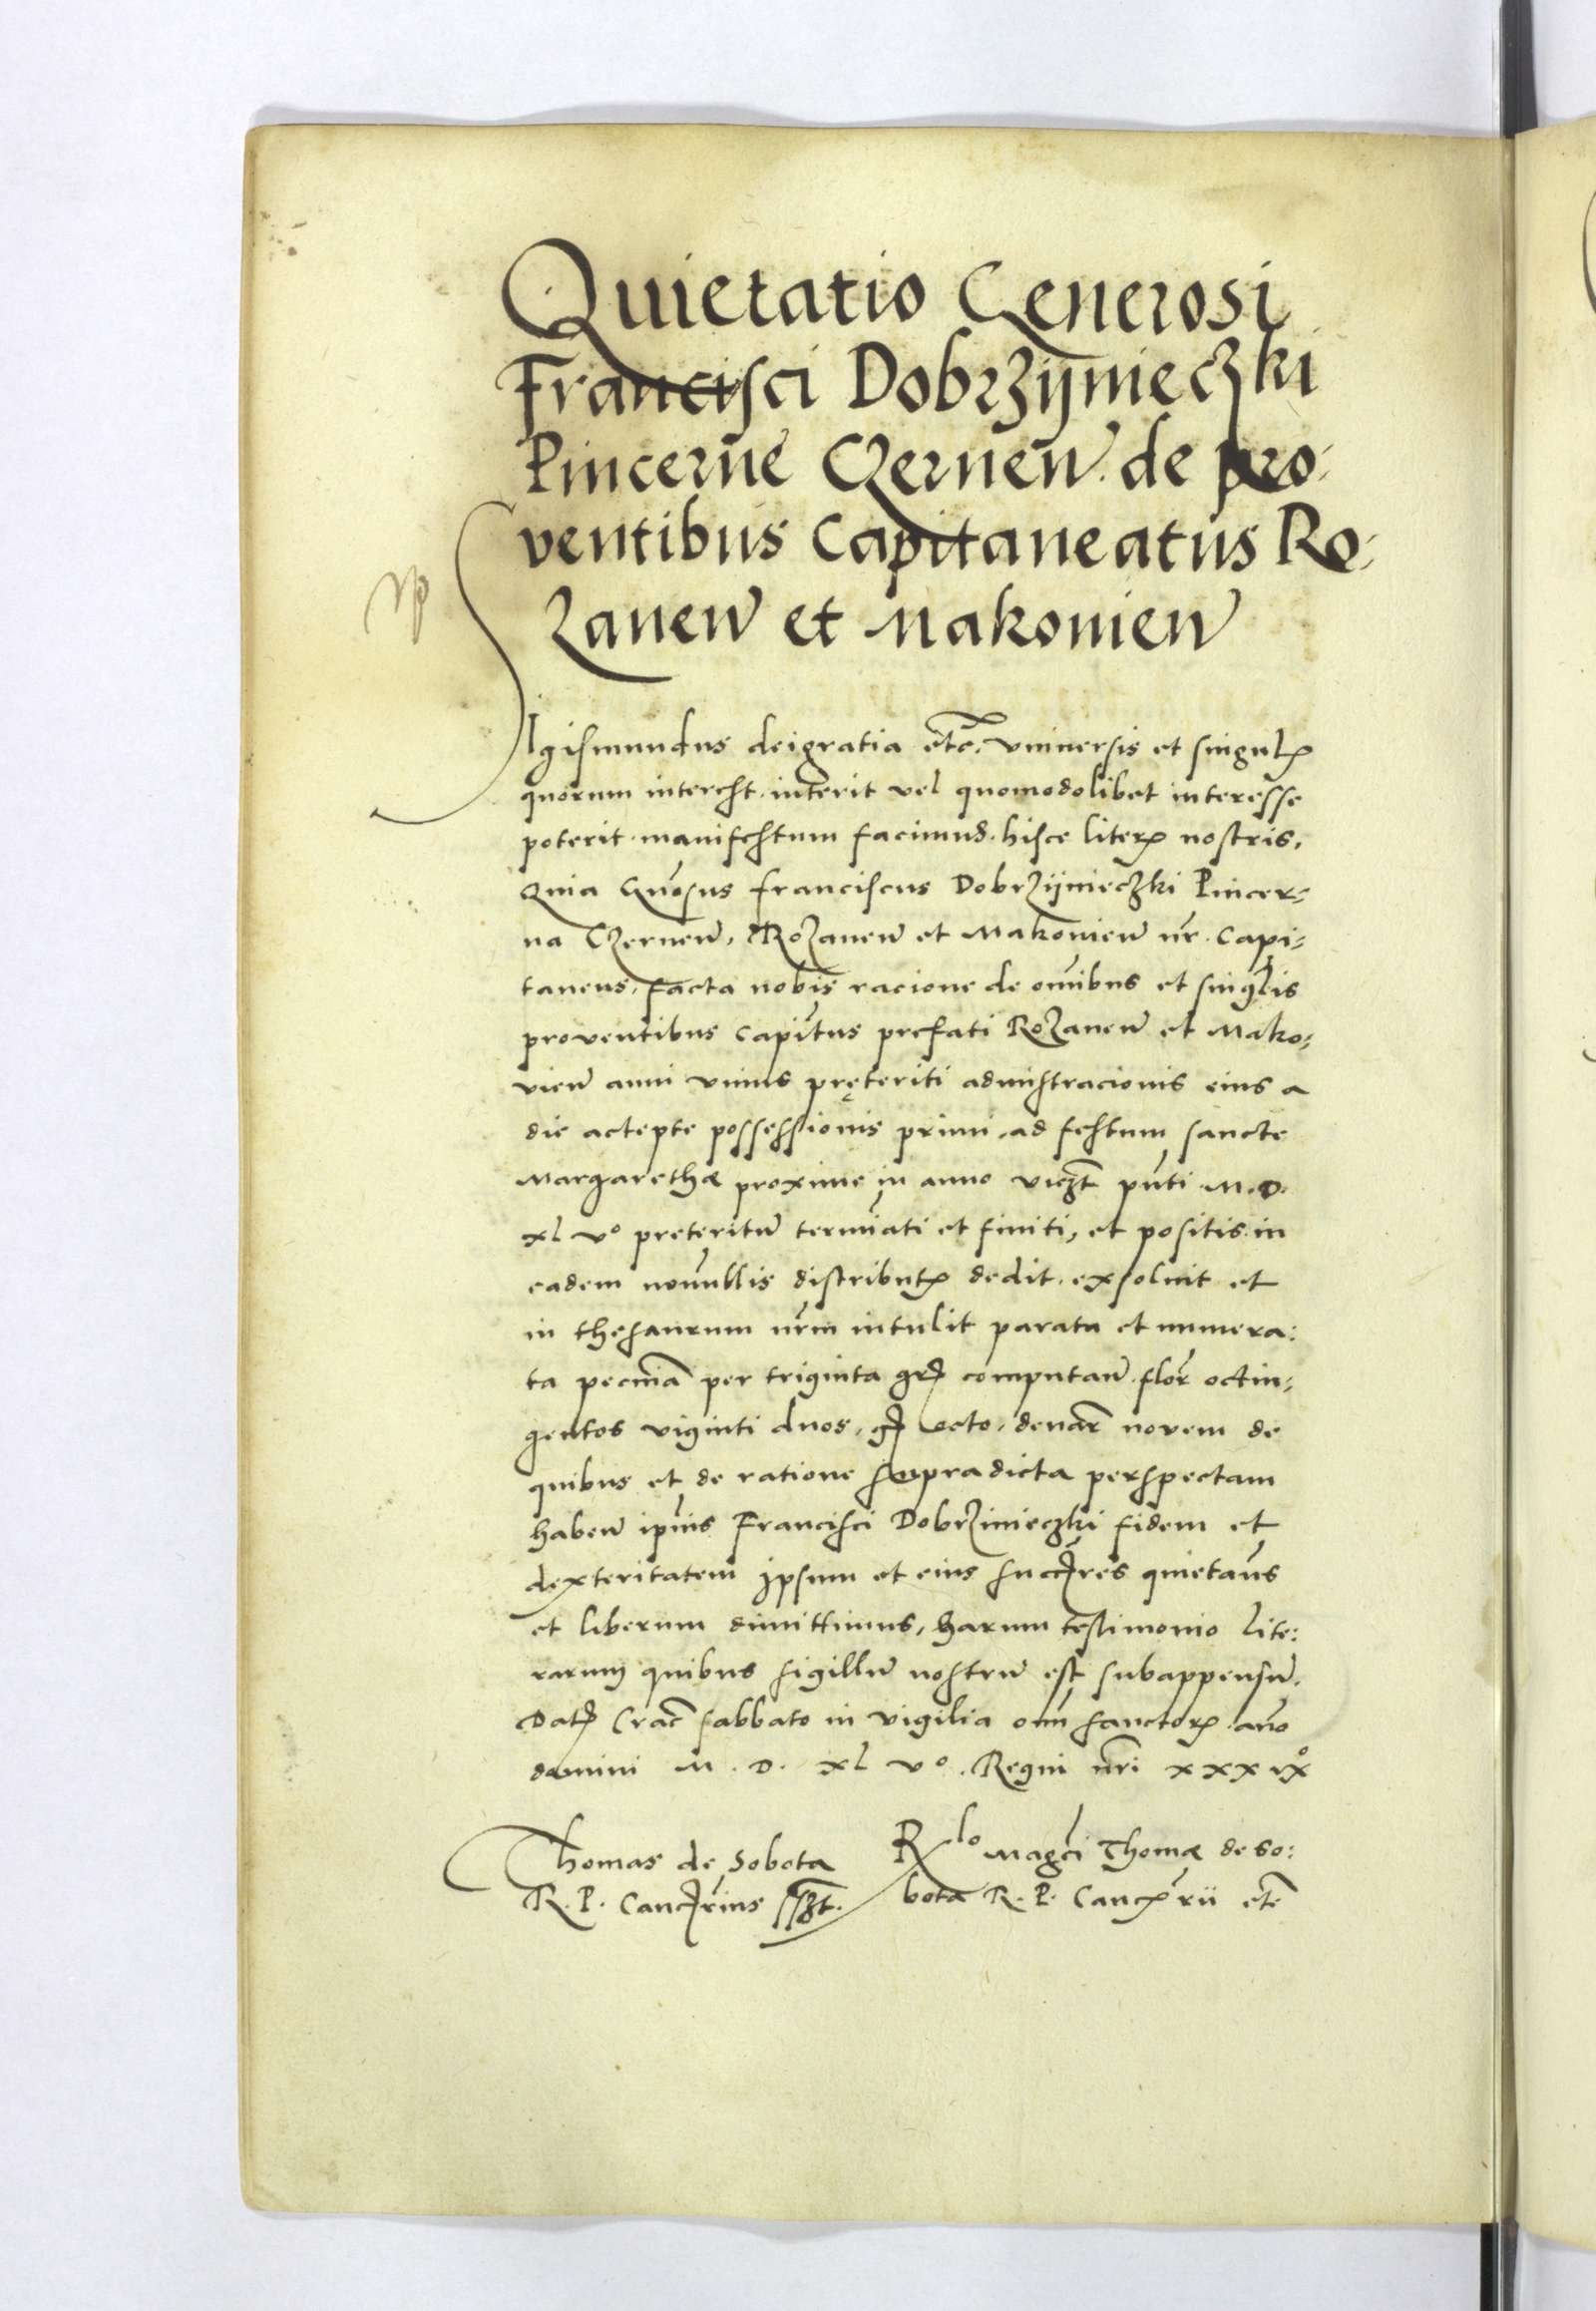 Quietatio Generosi
Francisci Dobrzÿnieczki
Pincerne Czernen̄. de pro:
ventibus Capitaneatus Ro:
zanen̄ et Makonien̄
Sigismundus dei gratia etc̄. vniuersis et singulꝝ
quorum interest. interit vel quomodolibet interesse
poterit. manifestum facimus. hisce literꝝ nostris,
Quia Gn̄osus Franciscus Dobrzÿnieczki Pincer:
na Czernen̄, Rozanen̄ et Makonien̄ nr̄. Capi:
taneus, facta nobis racione de om̄ibus et singl̄is
proventibus Capitt̄us prefati Rozanen̄ et Mako:
vien̄ anni vnius pręteriti admīstracionis eius a
die actepte possessionis primi, ad festum sancte
Margarethæ proxime in anno viczt̄ pn̄ti M. D.
xl vº preteritū termīati et finiti, et positis in
eadem non̄ullis distributꝝ dedit. exsoluit et
in thesaurum nr̄m intulit parata et numera:
ta pecuīa per triginta gr̄ computan̄. flor̄ octin:
gentos viginti duos, gr̄ octo, denar̄ novem de
quibus et de ratione supradicta perspectam
haben̄ ip̄ius Francisci Dobrzinieczki fidem et
dexteritatem ipsum et eius succr̄es quietam̄s
et liberum dimittimus, harum testimonio lite:
rarum quibus sigillū nostrū est subappensū.
Datꝭ Crac̄ sabbato in vigilia om̄ sanctorꝝ. an̄o
domini M. D. xl vº. Regni nr̄i xxxixº
Thomas de Sobota
R. P. Cancr̄ius sszt.
Rlo Magci Thomæ de So:
bota R. P. Cancr̄ii etc̄